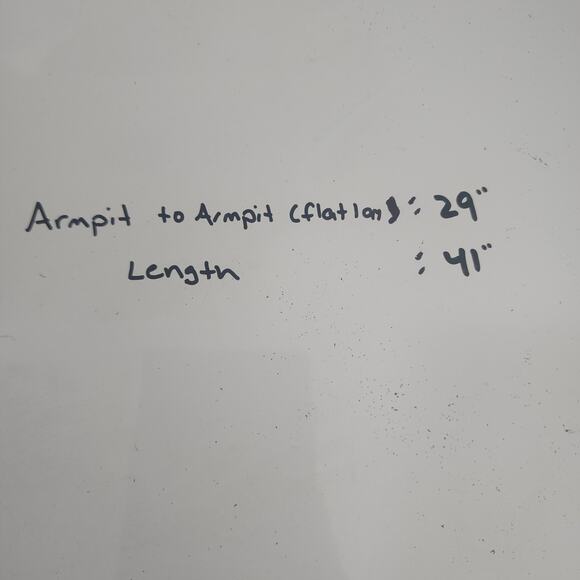 Armpit to Armpit (flat lan) : 29"
Length : 41"